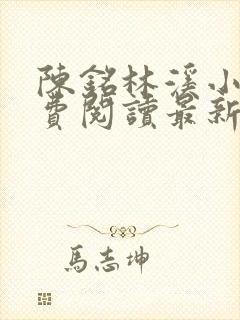 陳銘林溪小
費閱讀最新
馬志坤